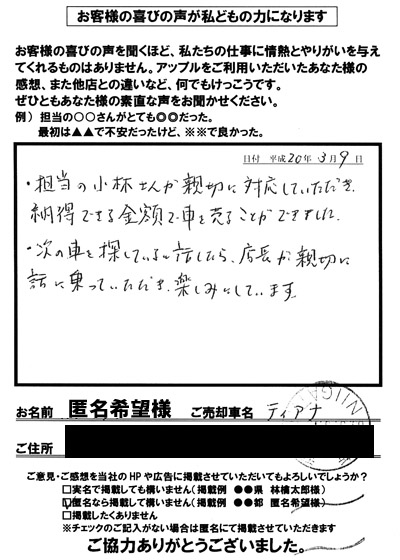 お客様の喜びの声が私どもの力になります
お客様の喜びの声を聞くほど、私たちの仕事に情熱とやりがいを与え
てくれるものはありません。アップルをご利用いただいたあなた様の
感想、また他店との違いなど、何でもけっこうです。
ぜひともあなた様の素直な声をお聞かせください。
例）担当の〇〇さんがとても◎◎だった。
最初は▲▲で不安だったけど、※※で良かった。
日付 平成20年3月9日
・担当の小林さんが親切に対応していただき、
納得できる金額で車を売ることができました。
・次の車を探していると話したら、店長が親切に
話に乗っていただき、楽しみにしています
お名前 匿名希望様 ご売却車名 ティアナ
NIIGAT
ご住所
ご意見・ご感想を当社のHPや広告に掲載させていただいてもよろしいでしょうか？
□実名で掲載しても構いません（掲載例 ●●県 林檎太郎様）
□匿名なら掲載して構いません（掲載例 ●●都 匿名希望様）
□掲載したくありません
※チェックのご記入がない場合は匿名にて掲載させていただきます
ご協力ありがとうございました。